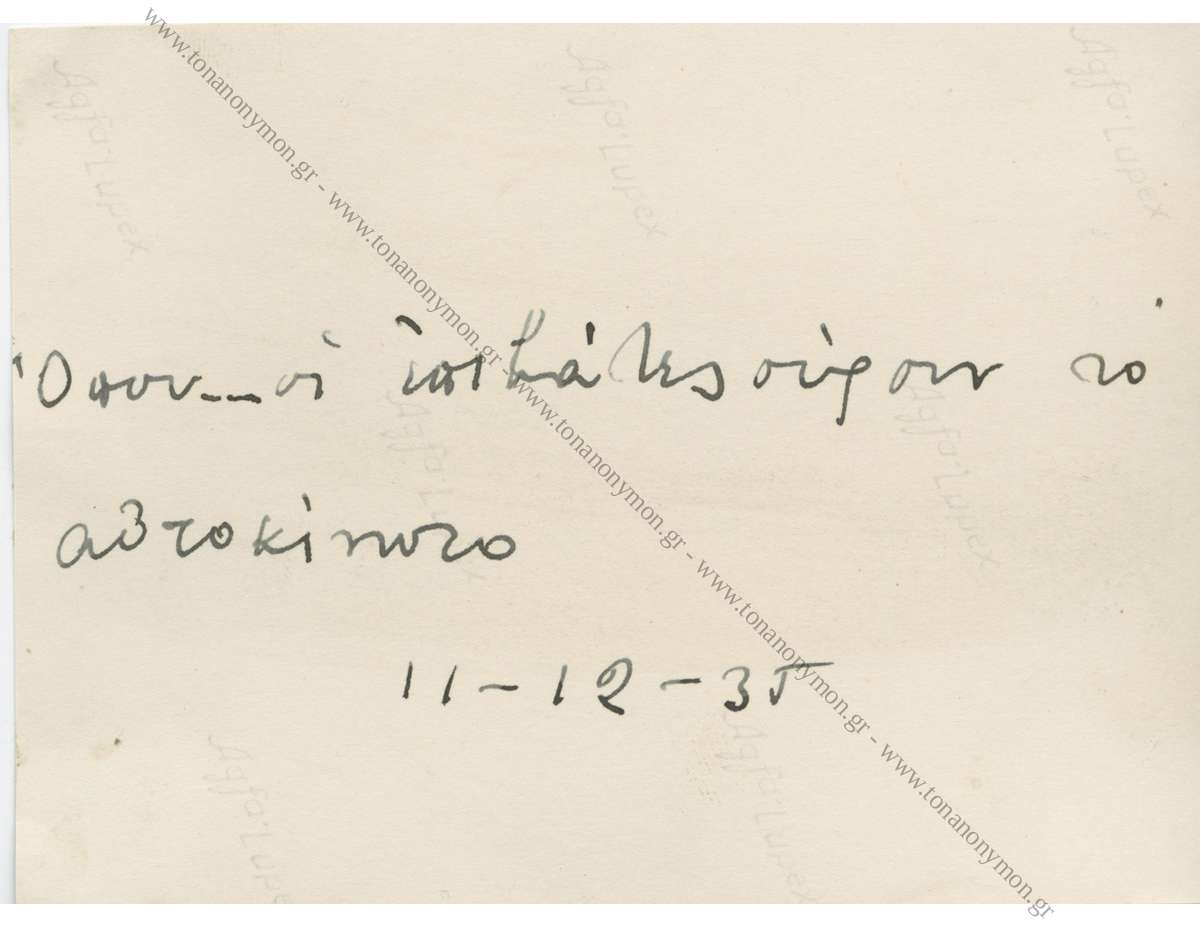 Ὅπου...οἱ ἐπιβάτες σύρουν τὸ
αὐτοκίνητο
11-12-35
www.tonanonymon.gr - www.tonanonymon.gr - www.tonanonymon.gr - www.tonanonymon.gr - www.tonanonymon.gr
Agfa-Lupex
Agfa-Lupex
Agfa-Lupex
Agfa-Lupex
Agfa-Lupex
Agfa-Lupex
Agfa-Lupex